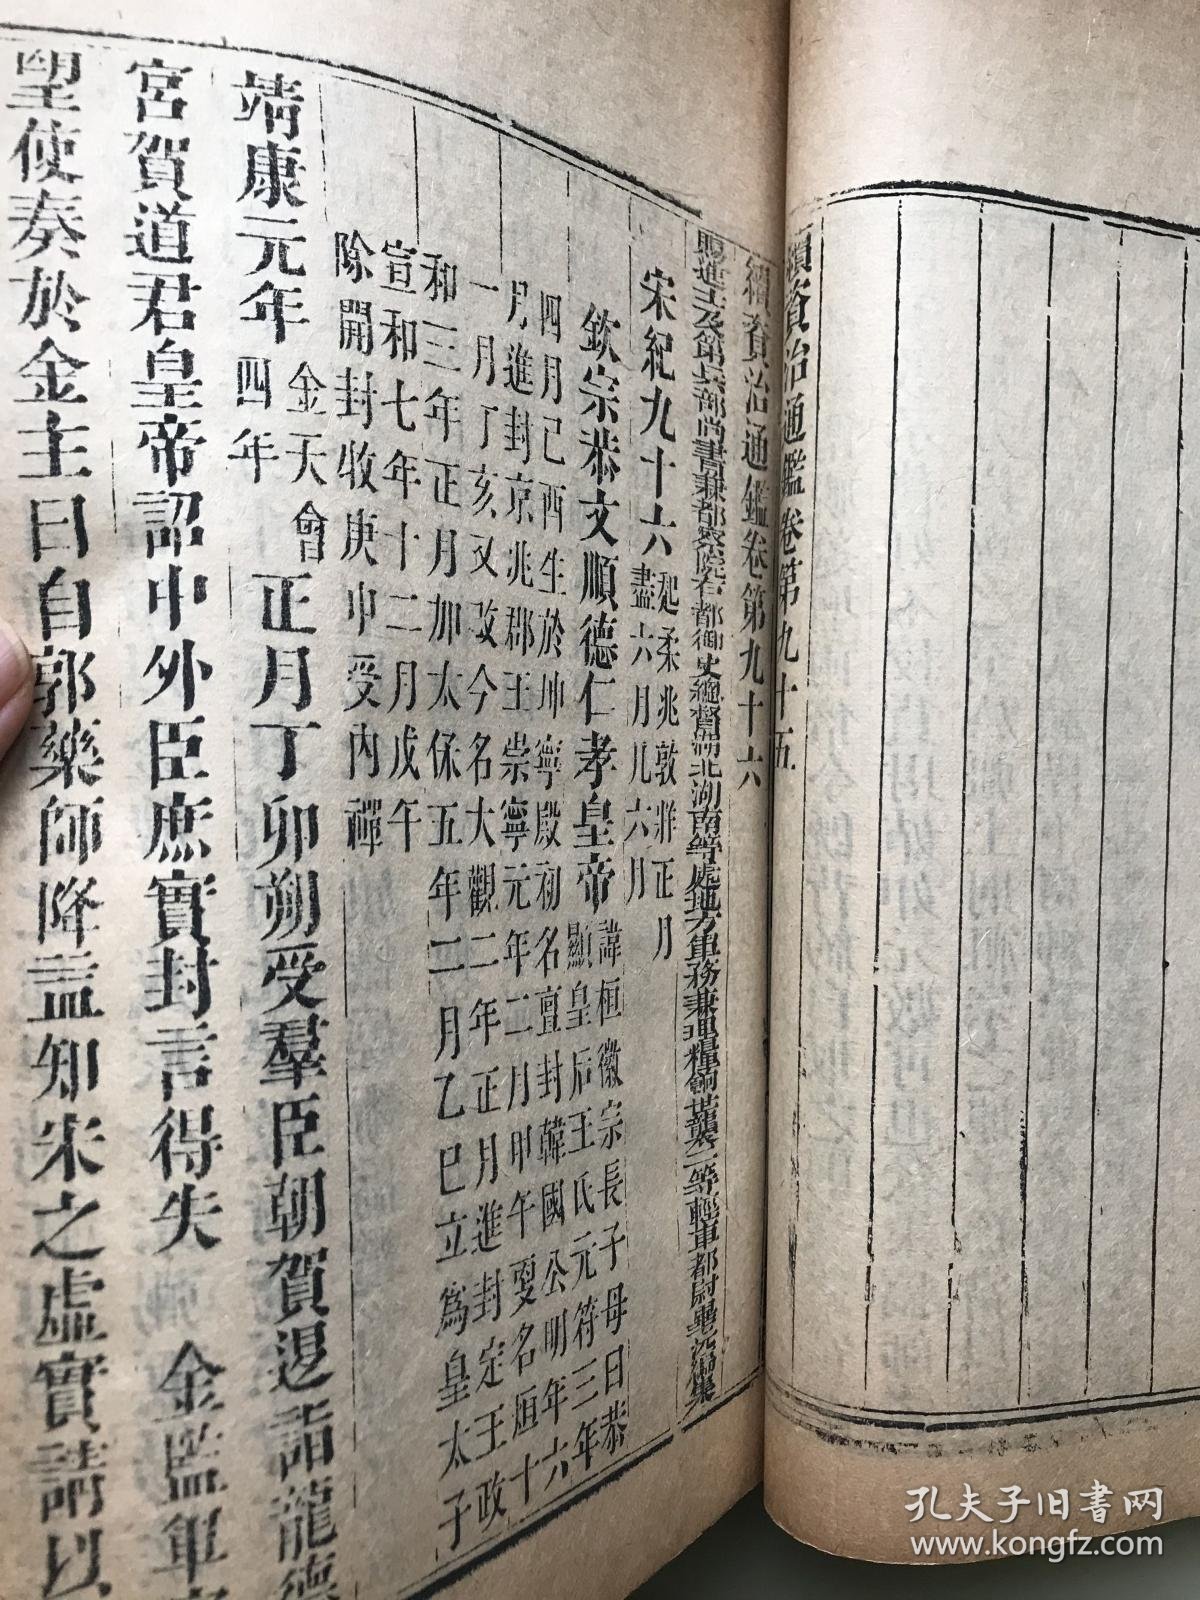 續資治通鑑卷第九十五
續資治通鑑卷第九十六
賜進士及第兵部尚書兼都察院右都御史總督湖北湖南等處地方軍務兼理糧餉世襲二等輕車都尉畢沅編集
宋紀九十六起柔兆敦牂正月
盡六月凡六月
欽宗恭文順德仁孝皇帝諱桓徽宗長子母曰恭
顯皇后王氏元符三年
四月己酉生於坤寧殿初名亶封韓國公明年六
月進封京兆郡王崇寧元年二月甲午更名烜十
一月丁亥又改今名大觀二年正月進封定王政
和三年正月加太保五年二月乙巳立為皇太子
宣和七年十二月戊午
除開封收庚申受內禪
靖康元年金天會
四年正月丁卯朔受羣臣朝賀退詣龍德
宮賀道君皇帝詔中外臣庶實封言得失 金監軍
望使奏於金主曰自郭藥師降益知宋之虛實請以
孔夫子旧书网
www.kongfz.com